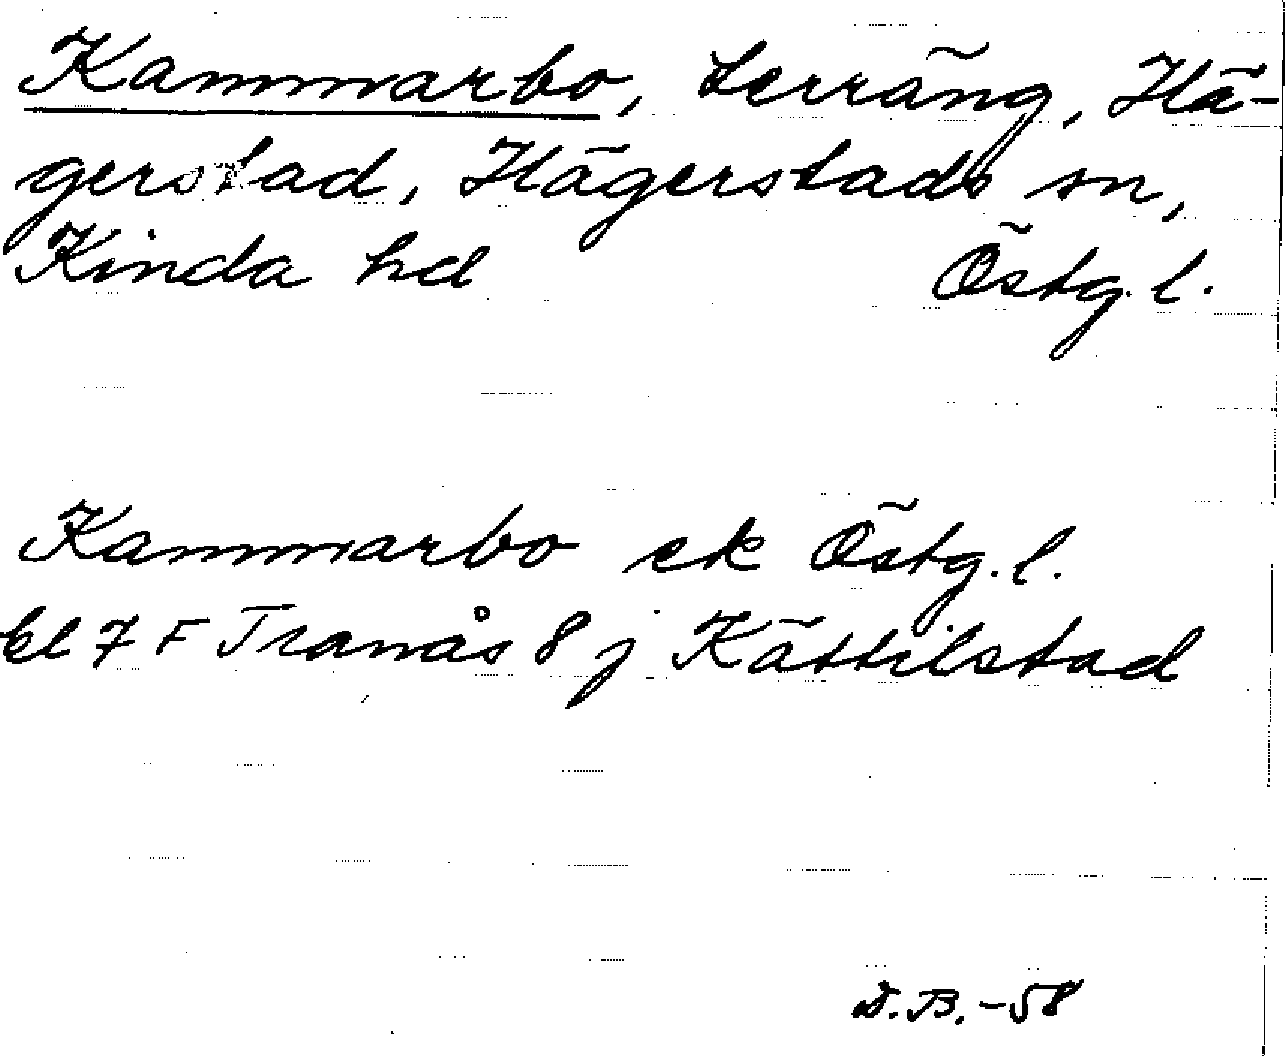 Kammarbo, terräng, Hä-
gerstad, Hägerstads sn,
Kinda hd Östg. l.
Kammarbo ek Östg. l.
bl 7 F Tranås 8 j Kättilstad
D.B. -58